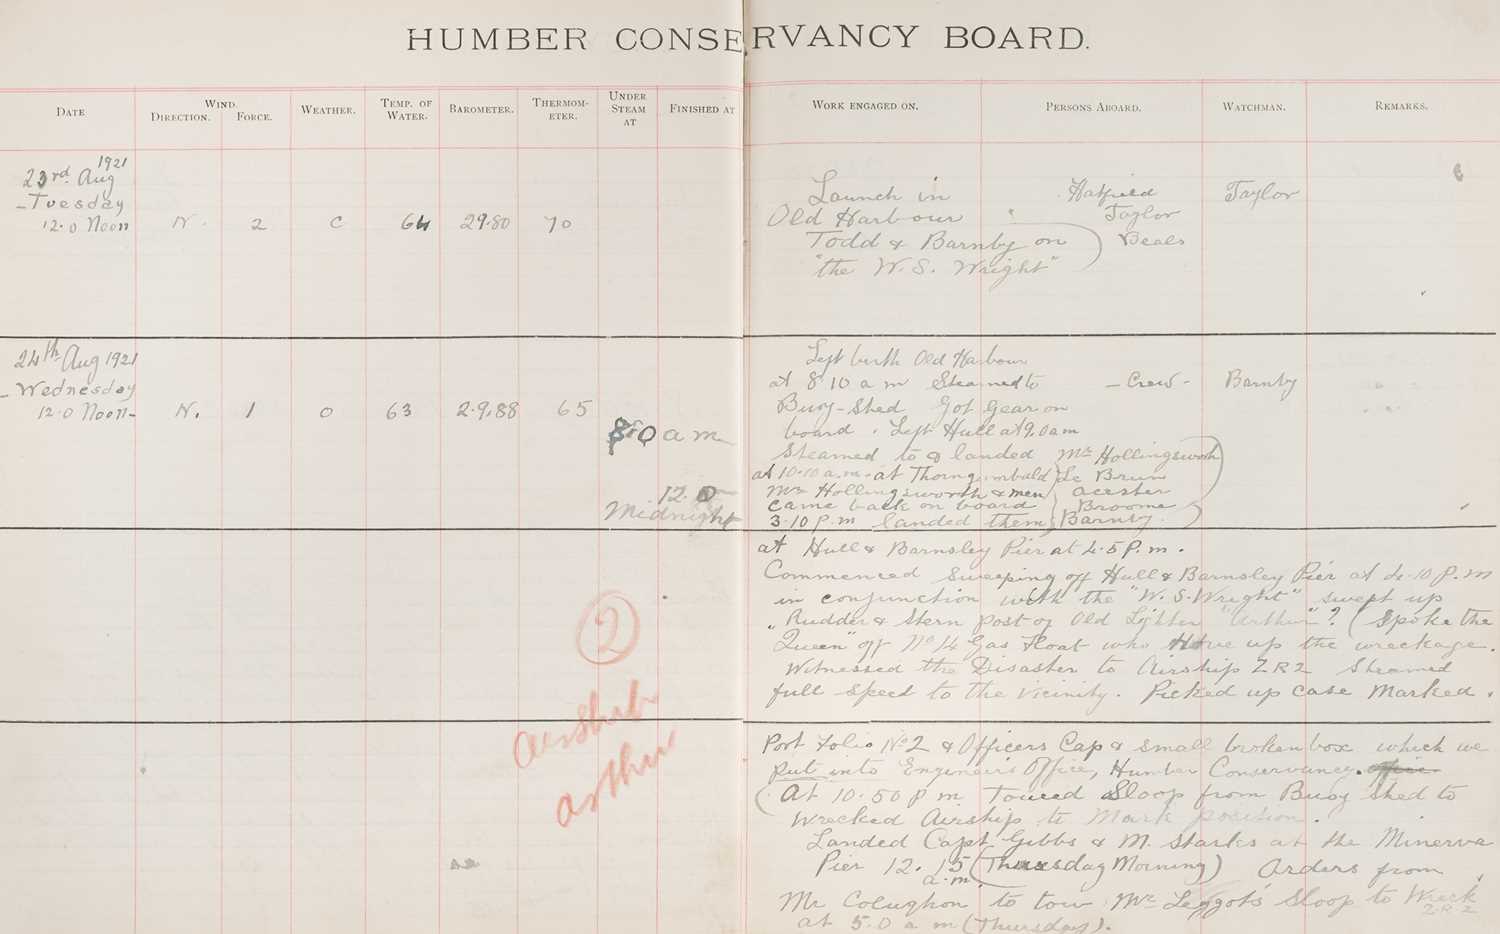 HUMBER CONSERVANCY BOARD.
DATE WIND. DIRECTION. FORCE. WEATHER. TEMP. OF WATER. BAROMETER. THERMOM-ETER. UNDER STEAM AT FINISHED AT WORK ENGAGED ON. PERSONS ABOARD. WATCHMAN. REMARKS.
1921
23rd Aug
Tuesday
12.0 Noon N. 2 C 64 29.80 70
Launch in
Old Harbour
Todd & Barnby on
"the W.S. Wright"
Hatfield
Taylor
Beals
Taylor
24th Aug 1921
Wednesday
12.0 Noon N. 1 O 63 29.88 65
8.0 a m
12.0
Midnight
Left birth Old Harbour
at 8 10 a m Steamed to
Buoy-Shed Got Gear on
board. Left Hull at 9.0 am
Steamed to & landed
at 10.10 a.m. at Thorngumbald
Mr Hollingsworth & men
came back on board
3.10 P.m landed them
- Crew -
Mr Hollingsworth
Le Brun
acester
Broome
Barnby.
Barnby
at Hull & Barnsley Pier at 4.5 P.m.
Commenced Sweeping off Hull & Barnsley Pier at 4.10 P.m
in conjunction with the "W.S. Wright" swept up
"Rudder & Stern post of Old Lighter "Arthur"? (Spoke the
Queen" off No 14 Gas Float who Hove up the wreckage.
Witnessed the Disaster to Airship ZR2 Steamed
full speed to the vicinity. Picked up case Marked.
2
Airship
Arthur
Port Folio No 2 & Officers Cap & small broken box which we
put into Engineers Office, Humber Conservancy. office
(At 10.50 P m Towed Sloop from Buoy Shed to
Wrecked Airship to Mark position.
Landed Capt. Gibbs & M. Starks at the Minerva
Pier 12.15 a.m (Thursday Morning) Orders from
Mr Colughon to tow Mr Leggot's Sloop to Wreck
Z.R 2
at 5.0 a m (Thursday).